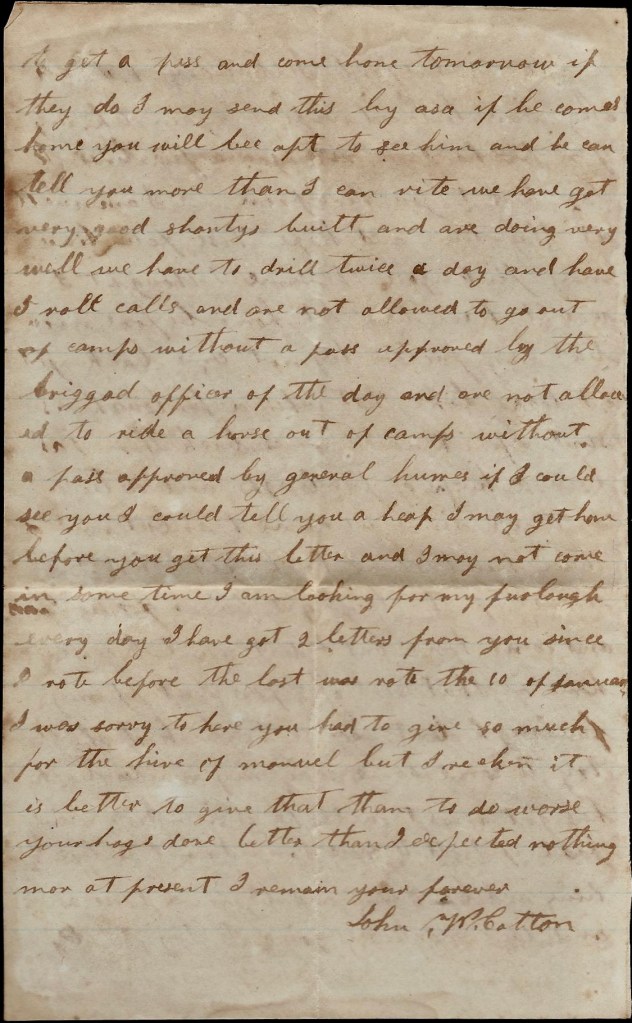 to get a pass and come home tomorrow if
they do I may send this by asa if he comes
home you will bee apt to see him and he can
tell you more than I can rite we have got
very good shantys built and are doing very
well we have to drill twice a day and have
roll calls and are not allowed to go out
of camps without a pass approved by the
briggad officer of the day and are not allow
ed to ride a horse out of camps without
a pass approved by general humes if I could
see you I could tell you a heap I may get home
before you get this letter and I may not come
in some time I am looking for my furlough
every day I have got 2 letters from you since
I rote before the last was rote the 10 of januar
I was sorry to here you had to give so much
for the hire of manuel but I recken it
is better to give that than to do worse
your hogs done better than I expected nothing
mor at present I remain your forever
John W. Cotton